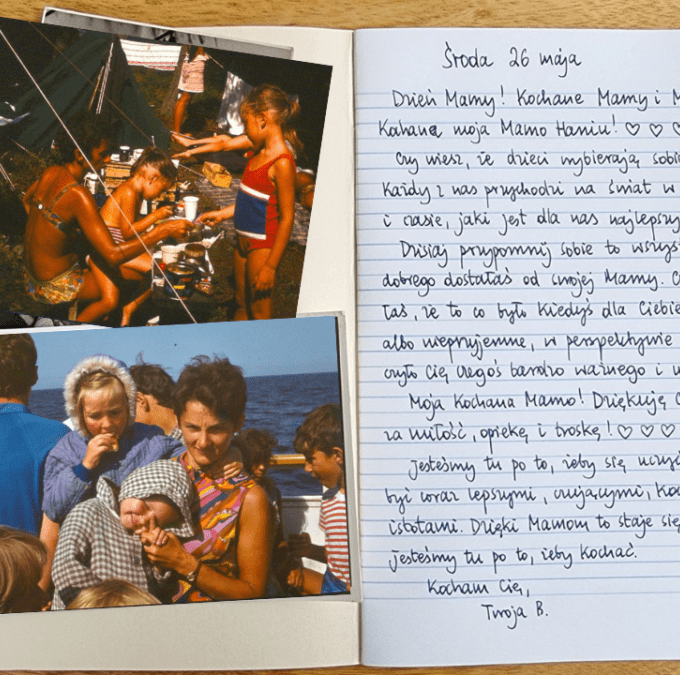 Środa 26 maja
Dzień Mamy! Kochane Mamy i
Kochana moja Mamo Haniu! ♡ ♡
Czy wiesz, że dzieci wybierają
Każdy z nas przychodzi na świat w
i czasie, jaki jest dla nas
Dzisiaj przypomnij sobie to
dobrego dostałaś od swojej Mamy.
łaś, że to co było kiedyś dla
albo nieprzyjemne, w perspektywie
czyło Cię czegoś bardzo ważnego i
Moja Kochana Mamo! Dziękuję
za miłość, opiekę i troskę! ♡ ♡ ♡
Jesteśmy tu po to, żeby się
być coraz lepszymi, czującymi,
istotami. Dzięki Mamom to staje
Jesteśmy tu po to, żeby kochać.
Kocham Cię,
Twoja B.